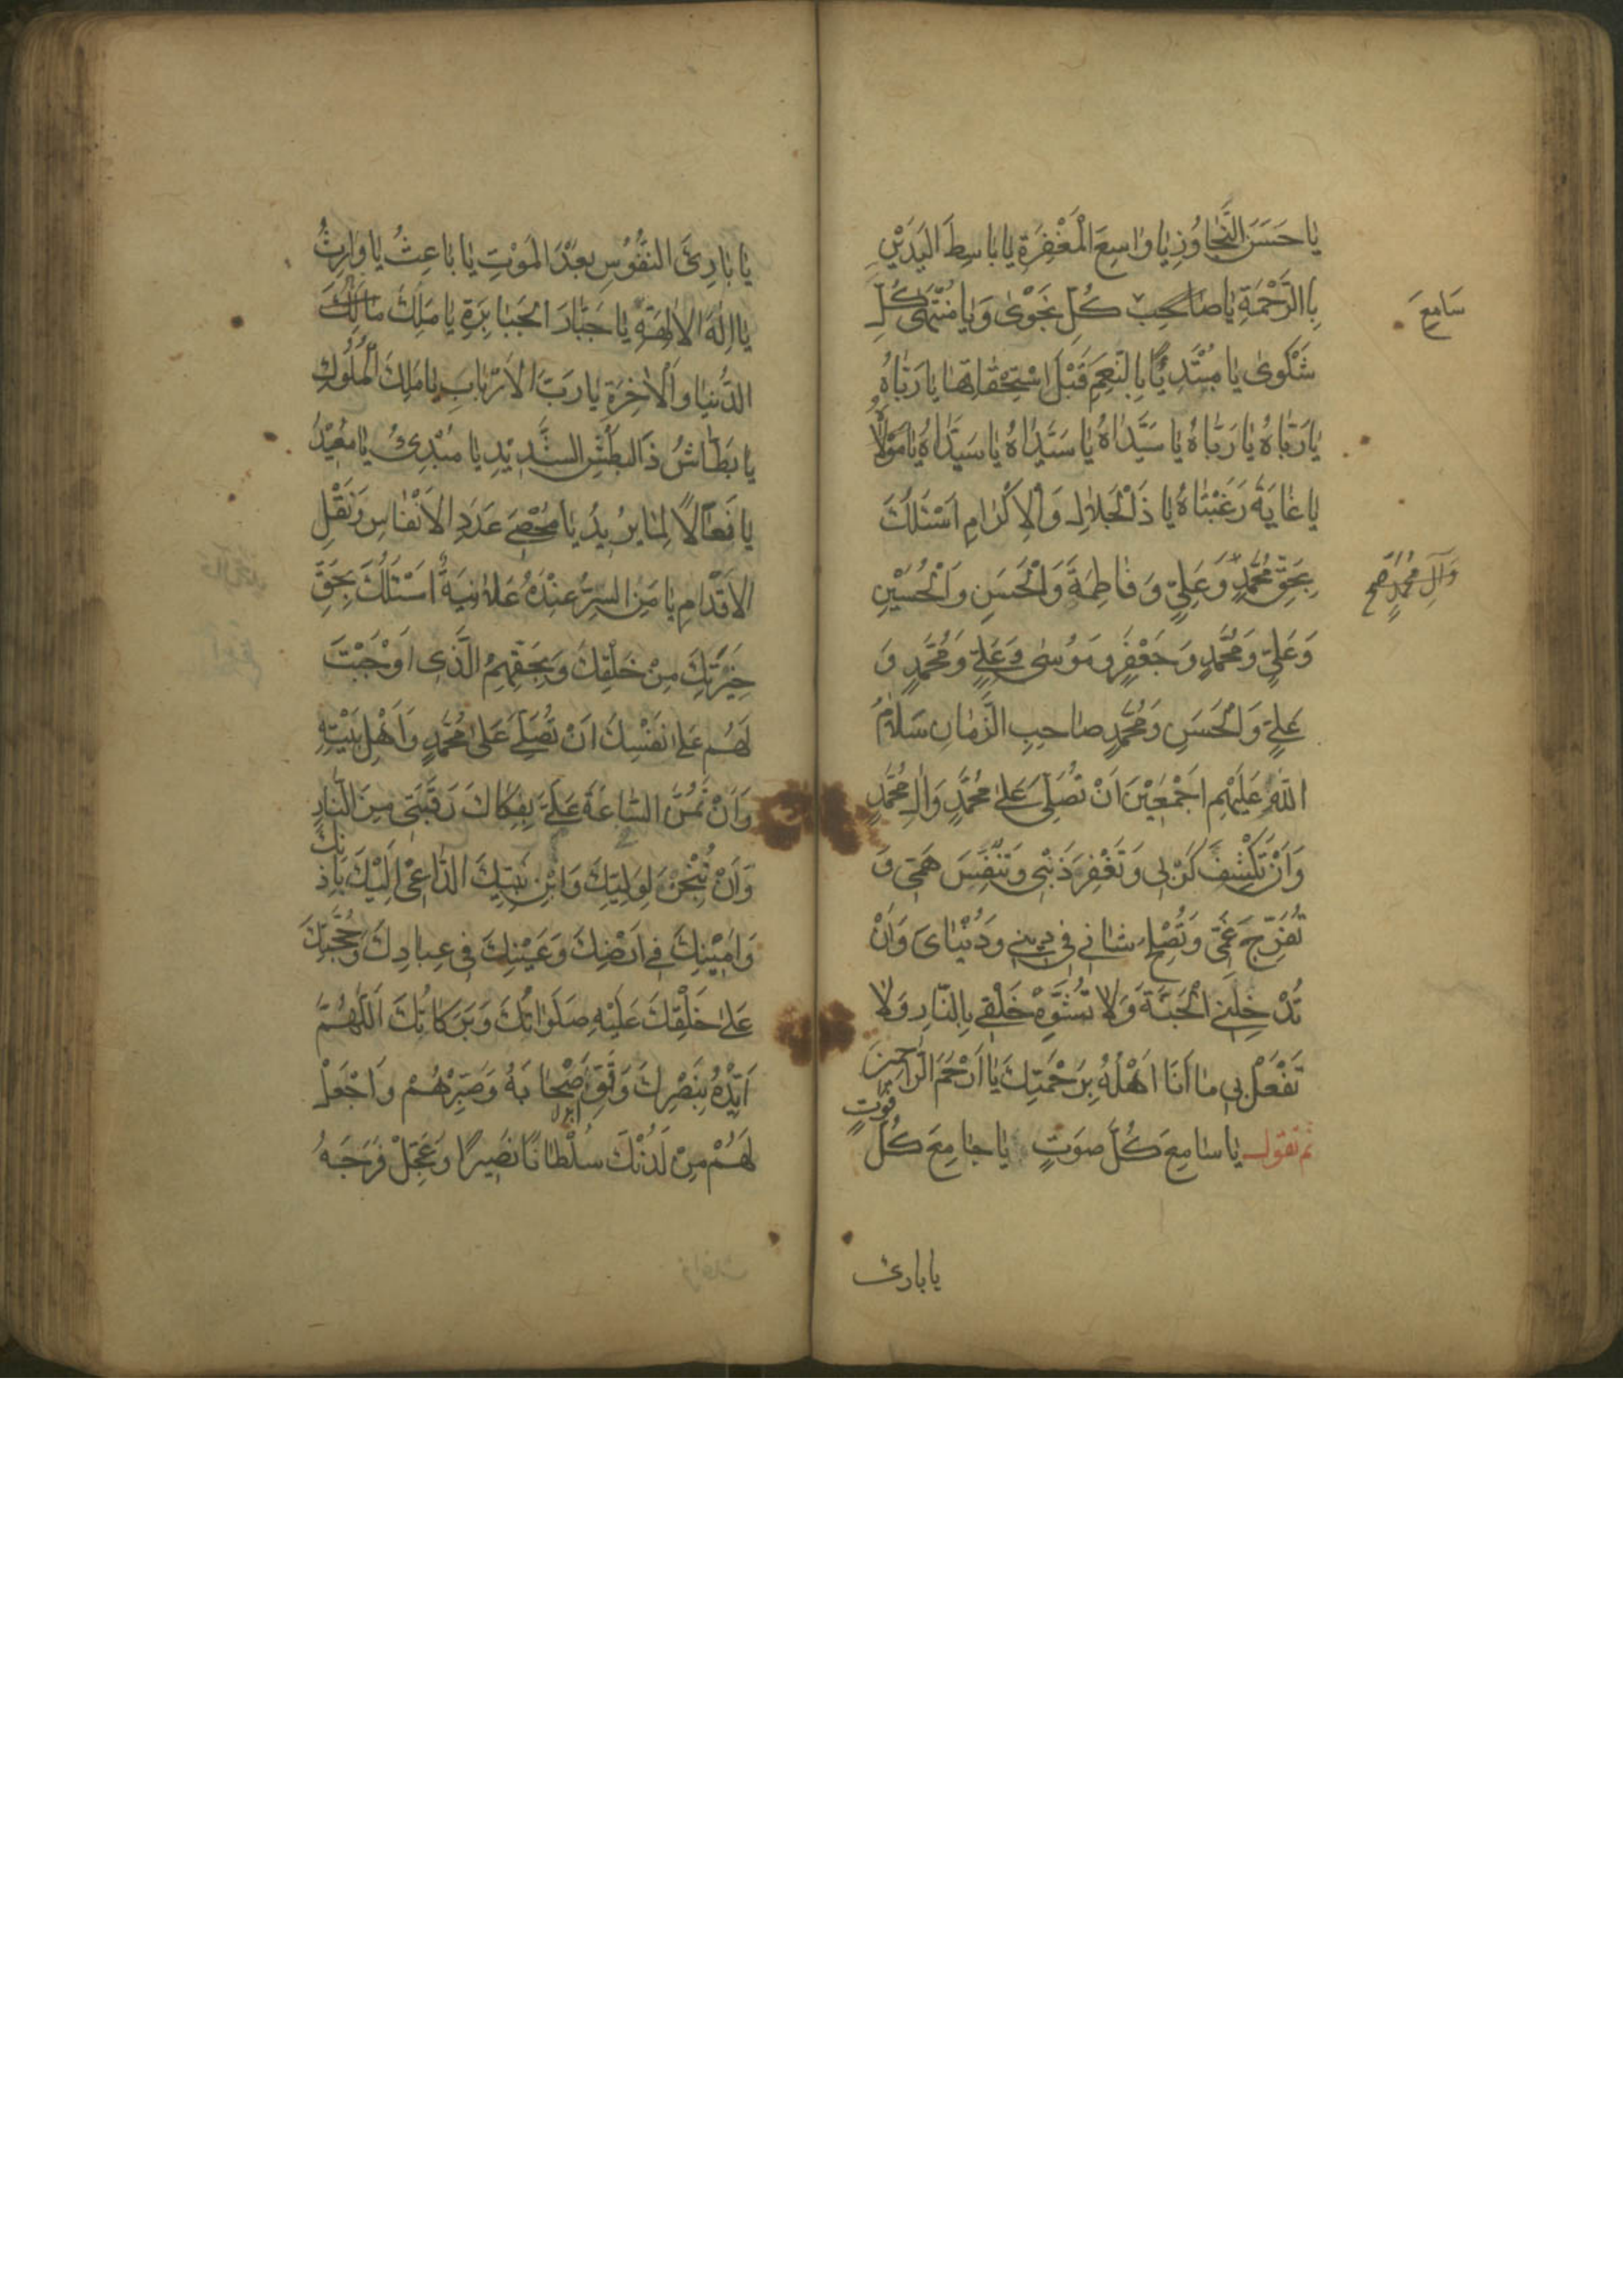 يَا حَسَنَ التَّجَاوُزِ يَا وَاسِعَ الْمَغْفِرَةِ يَا بَاسِطَ الْيَدَيْنِ
بِالرَّحْمَةِ يَا صَاحِبَ كُلِّ نَجْوَىٰ وَيَا مُنْتَهَىٰ كُلِّ
سَامِعَ
شَكْوَىٰ يَا مُبْتَدِيًا بِالنِّعَمِ قَبْلَ اسْتِحْقَاقِهَا يَا رَبَّاهُ
يَا رَبَّاهُ يَا رَبَّاهُ يَا سَيِّدَاهُ يَا سَيِّدَاهُ يَا سَيِّدَاهُ يَا مَوْلَاهُ
يَا غَايَةَ رَغْبَتَاهُ يَا ذَا الْجَلَالِ وَالْإِكْرَامِ اَسْئَلُكَ
بِحَقِّ مُحَمَّدٍ وَعَلِيٍّ وَفَاطِمَةَ وَالْحَسَنِ وَالْحُسَيْنِ
وَآلِ مُحَمَّدٍ صح
وَعَلِيٍّ وَمُحَمَّدٍ وَجَعْفَرٍ وَمُوسَىٰ وَعَلِيٍّ وَمُحَمَّدٍ وَ
عَلِيٍّ وَالْحَسَنِ وَمُحَمَّدٍ صَاحِبِ الزَّمَانِ سَلَامُ
اللّٰهِ عَلَيْهِمْ اَجْمَعِيْنَ اَنْ تُصَلِّيَ عَلَىٰ مُحَمَّدٍ وَاٰلِ مُحَمَّدٍ
وَاَنْ تَكْشِفَ كَرْبِي وَتَغْفِرَ ذَنْبِي وَتُنَفِّسَ هَمِّي وَ
تُفَرِّجَ غَمِّي وَتُصْلِحَ شَانِي فِي دِينِي وَدُنْيَايَ وَاَنْ
تُدْخِلَنِي الْجَنَّةَ وَلَا تُشَوِّهْ خَلْقِي بِالنَّارِ وَلَا
تَفْعَلْ بِي مَا اَنَا اَهْلُهُ بِرَحْمَتِكَ يَا اَرْحَمَ الرَّاحِمِينَ
ثم تقول يَا سَامِعَ كُلِّ صَوْتٍ يَا جَامِعَ كُلِّ فَوْتٍ
يا بارئ
يَا بَارِئَ النُّفُوْسِ بَعْدَ الْمَوْتِ يَا بَاعِثُ يَا وَارِثُ
يَا اِلٰهَ الْاٰلِهَةِ يَا جَبَّارَ الْجَبَابِرَةِ يَا مَلِكَ مَالِكَ
الدُّنْيَا وَالْاٰخِرَةِ يَا رَبَّ الْاَرْبَابِ يَا مَلِكَ الْمُلُوكِ
يَا بَطَّاشُ ذَا الْبَطْشِ الشَّدِيْدِ يَا مُبْدِئُ يَا مُعِيْدُ
يَا فَعَّالًا لِمَا يُرِيدُ يَا مُحْصِيَ عَدَدِ الْاَنْفَاسِ وَنَقْلِ
الْاَقْدَامِ يَا مَنِ السِّرُّ عِنْدَهُ عَلَانِيَةٌ اَسْئَلُكَ بِحَقِّ
خِيَرَتِكَ مِنْ خَلْقِكَ وَبِحَقِّهِمُ الَّذِي اَوْجَبْتَ
لَهُمْ عَلَىٰ نَفْسِكَ اَنْ تُصَلِّيَ عَلَىٰ مُحَمَّدٍ وَاَهْلِ بَيْتِهِ
وَاَنْ تَمُنَّ السَّاعَةَ عَلَيَّ بِفِكَاكَ رَقَبَتِي مِنَ النَّارِ
وَاَنْ تُنْجِزَ لِوَلِيِّكَ وَابْنِ نَبِيِّكَ الدَّاعِيْ اِلَيْكَ بِاِذْنِكَ
وَاَمِيْنِكَ فِي اَرْضِكَ وَعَيْنِكَ فِي عِبَادِكَ وَحُجَّتِكَ
عَلَىٰ خَلْقِكَ عَلَيْهِ صَلَوَاتُكَ وَبَرَكَاتُكَ اَللّٰهُمَّ
اَيِّدْهُ بِنَصْرِكَ وَقَوِّ اَصْحَابَهُ وَصَبِّرْهُمْ وَاجْعَلْ
لَهُمْ مِنْ لَدُنْكَ سُلْطَانًا نَصِيرًا وَعَجِّلْ فَرَجَهُ